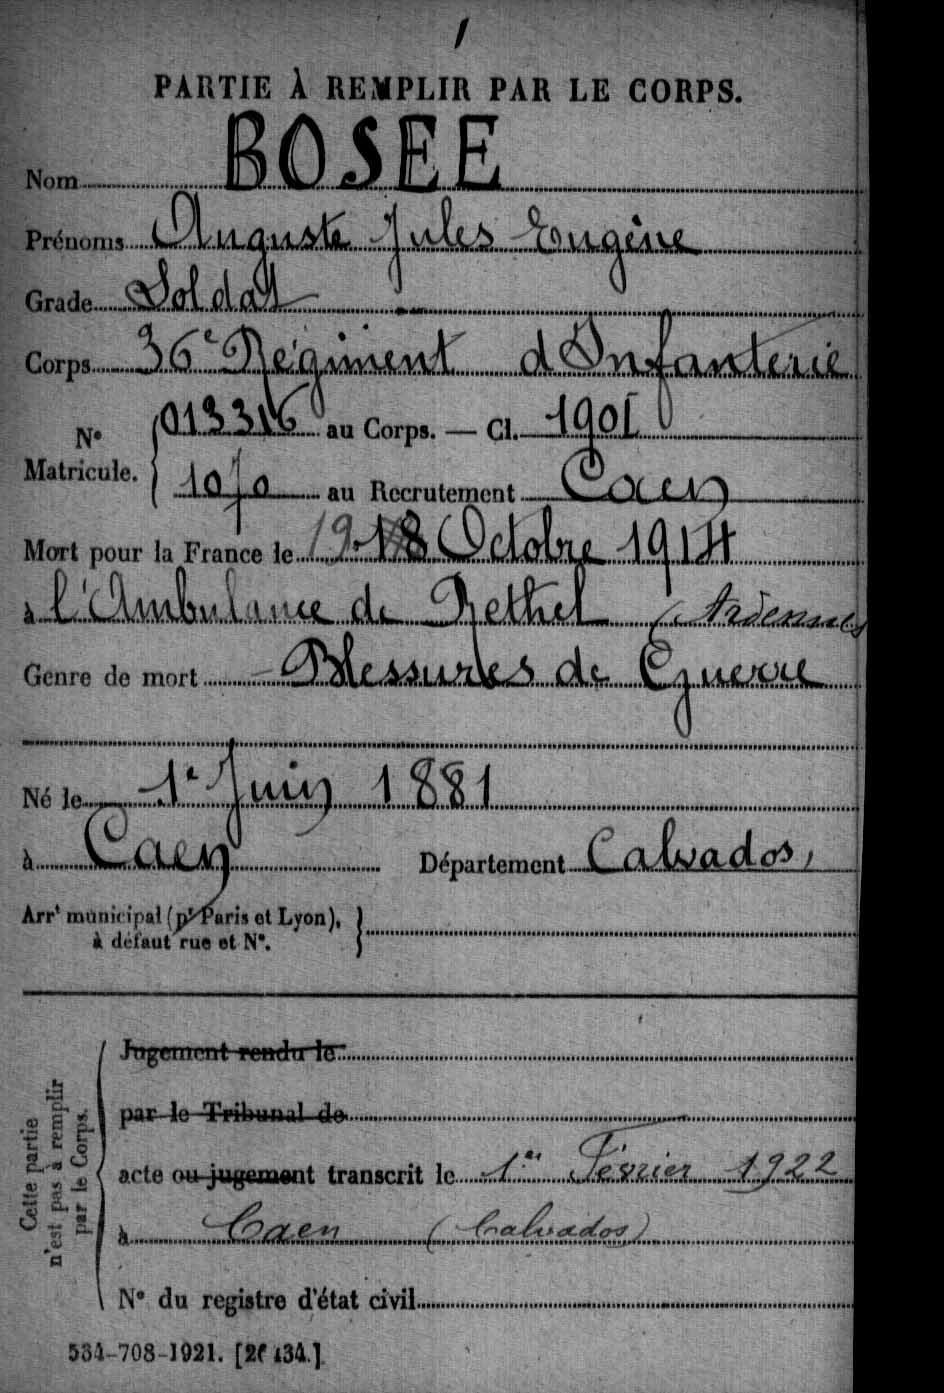 1
PARTIE À REMPLIR PAR LE CORPS.
Nom BOSEE
Prénoms Auguste Jules Eugène
Grade Soldat
Corps 36e Régiment d'Infanterie
No Matricule. 013316 au Corps. — Cl. 1901
1070 au Recrutement Caen
Mort pour la France le 19 18 Octobre 1914
à l'Ambulance de Rethel (Ardennes
Genre de mort Blessures de Guerre
Né le 1e Juin 1881
à Caen Département Calvados,
Arrt municipal (pr Paris et Lyon),
à défaut rue et No.
Cette partie
n'est pas à remplir
par le Corps.
Jugement rendu le
par le Tribunal de
acte ou jugement transcrit le 1er Février 1922
à Caen (Calvados)
No du registre d'état civil
534-708-1921. [26434.]